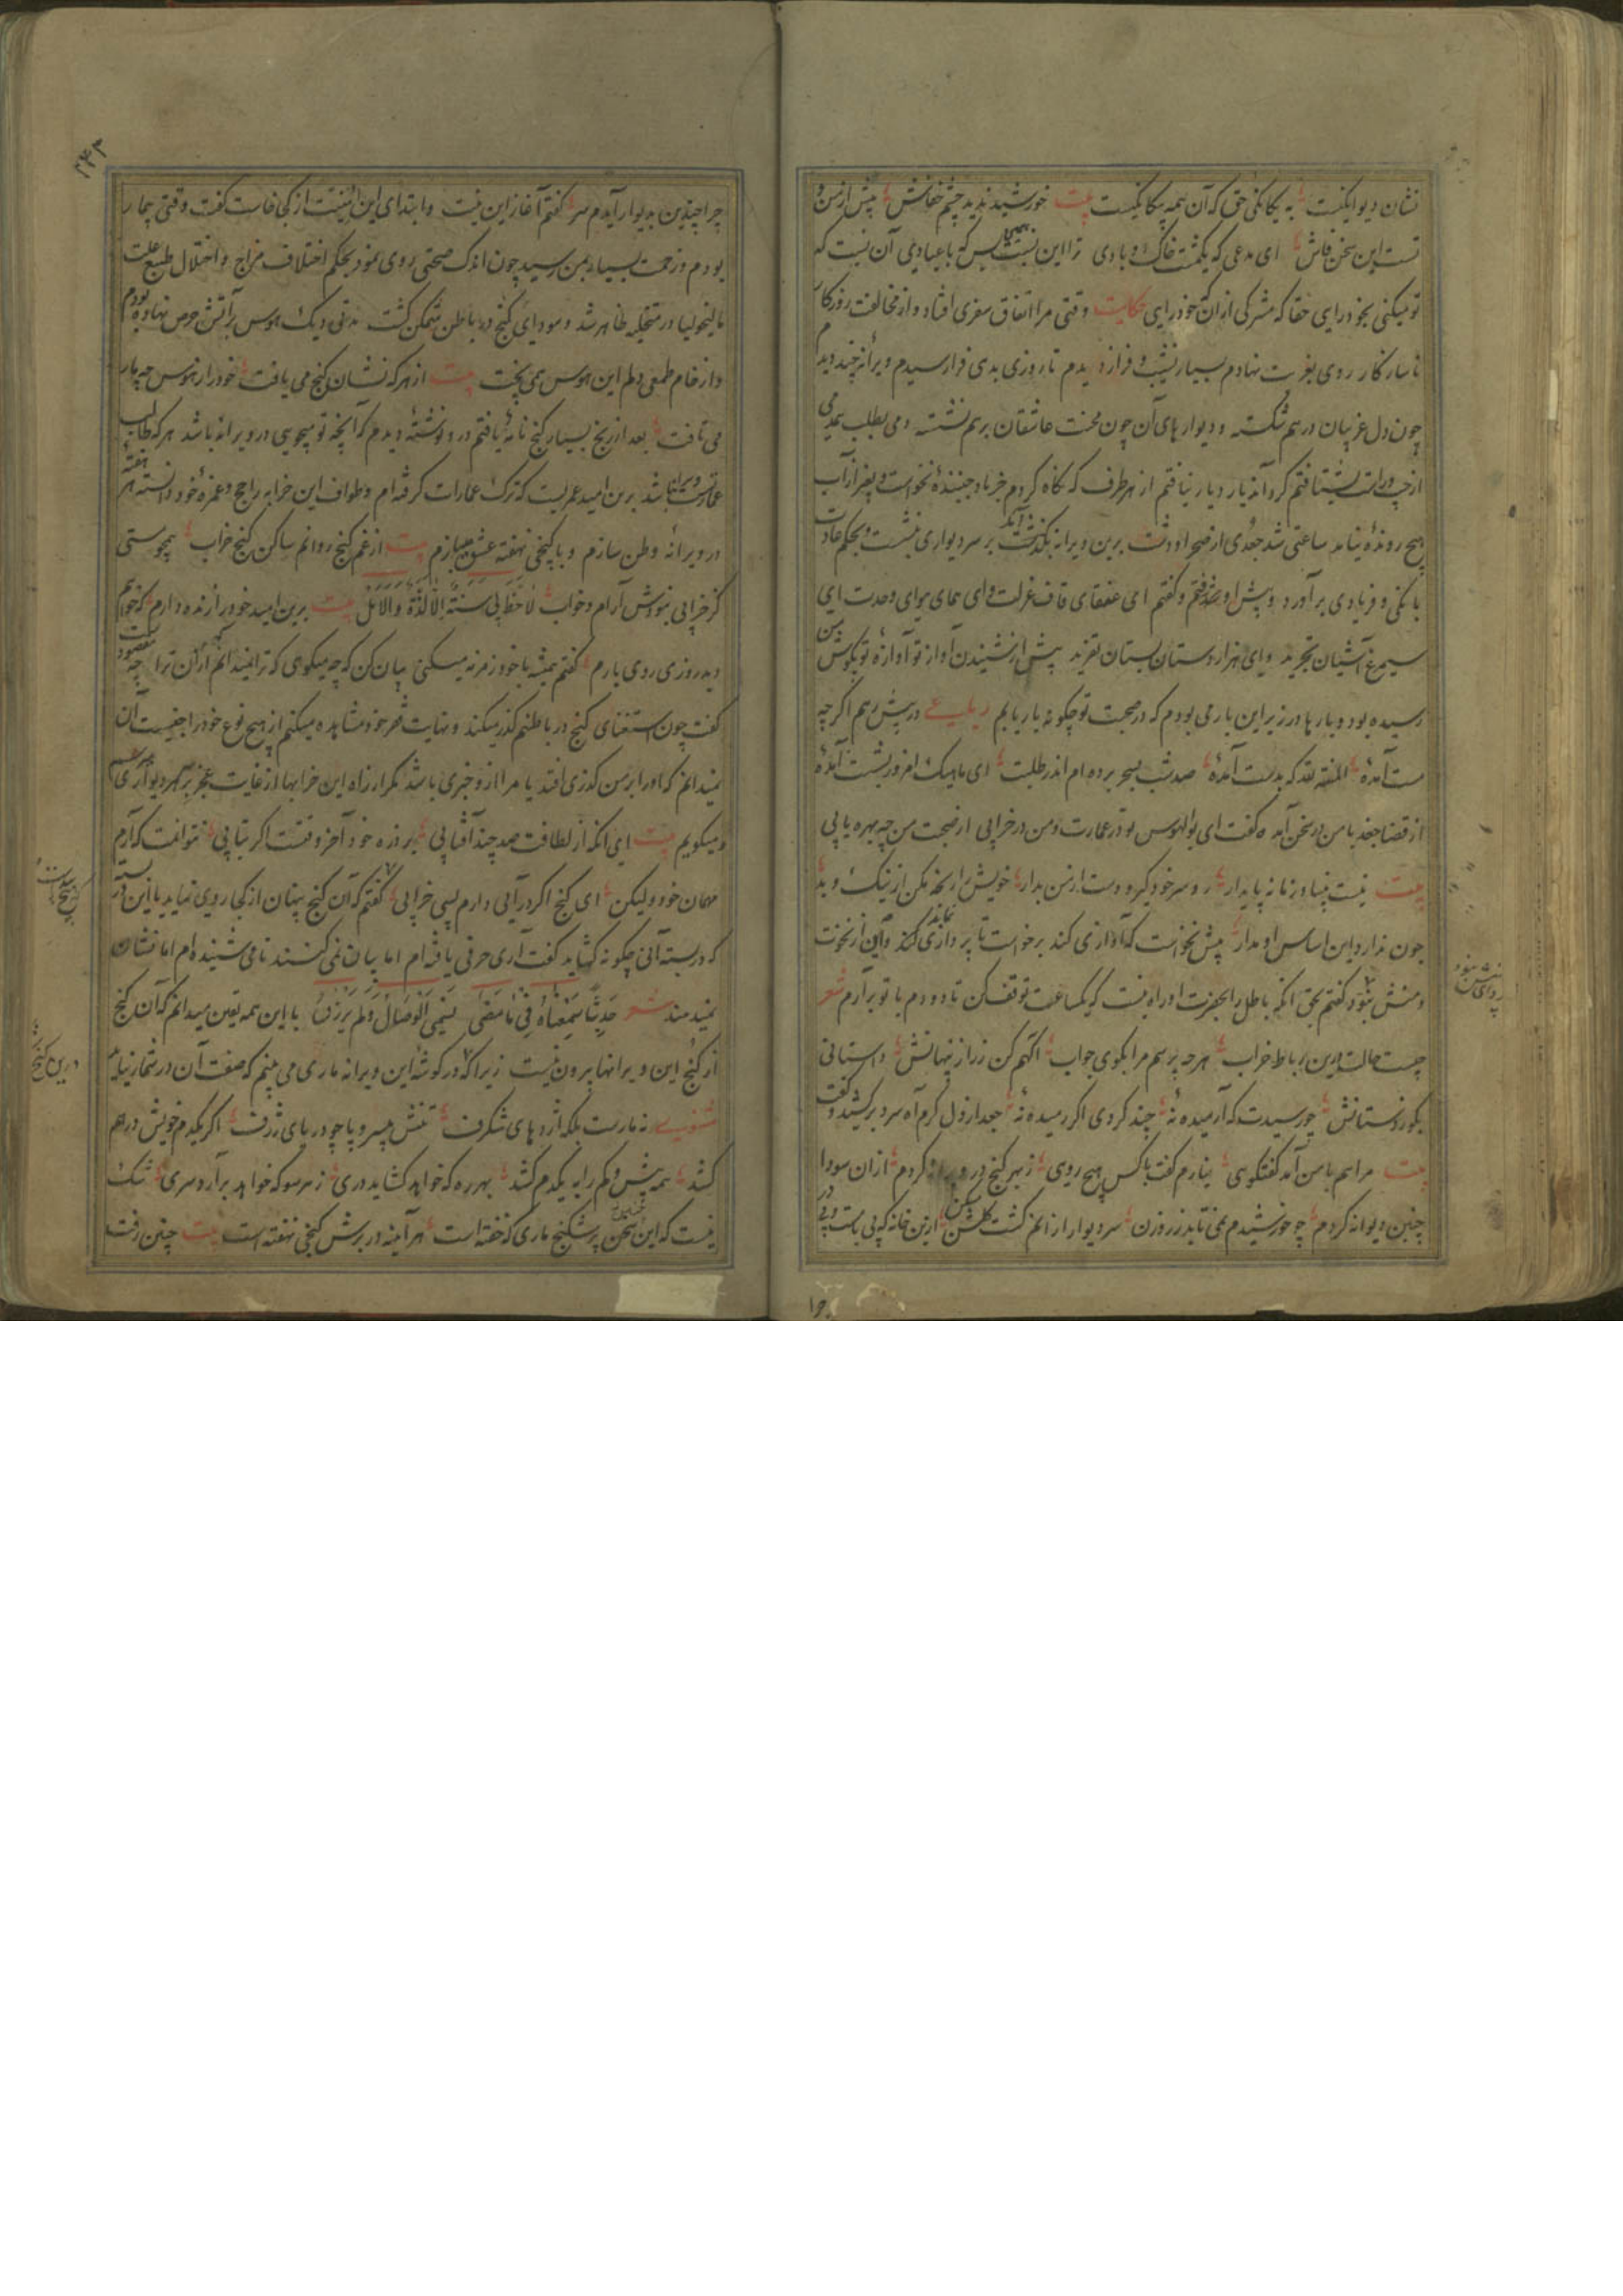 نشان دیوانگیست به یگانگی حق که آن همه بیگانگیست بیت خورشید ندید چشم خفاش پیش از من و
تست این سخن فاش ای مدعی که یکمشت خاک و بادی ترا این نسبت بس که با عبادی آن نیست که
تو میکنی بخود رایی حقا که مشرکی ازان خود رایی حکایت وقتی مرا اتفاق سفری افتاد و از مخالفت روزگار
ناسازکار روی بغربت نهادم بسیار نشیب و فراز دیدم تا روزی بدی فرا رسیدم ویرانه چند دیدم
چون دل غریبان درهم شکسته و دیوارهای آن چون محنت عاشقان برهم نشسته دمی بطلب همدمی
از چپ و راست بشتافتم گرد آن دیار دیار نیافتم از هر طرف که نگاه کردم جز باد جنبنده نخواست و بغیر از آب
هیچ رونده نیامد ساعتی شد جغدی از صحرا و دشت برین ویرانه بگذشت بر سر دیواری بنشست و بحکم عادت
بانگی و فریادی برآورد و پیش او رفتم و گفتم ای عنقای قاف عزلت و ای همای هوای وحدت ای
سیمرغ آشیان تجرید و ای هزاردستان بستان تفرید پیش از شنیدن آواز تو آوازه تو بگوش من
رسیده بود و بارها در زیر این بار می بودم که در صحبت تو چگونه بار یابم رباعی در پیش رهم اگر چه
مست آمده المنة لله که بدست آمده صد شب بسحر برده ام اندر طلبت ای ماهیک امروز بشست آمده
از قضا جغد با من در سخن آمد که گفت ای بوالهوس تو در عمارت و من در خرابی از صحبت من چه بهره یابی
بیت نیست بنیاد زمانه پایدار رو سر خود گیر و دست از من بدار خویش را رنجه مکن از نیک و بد
چون ندارد این اساس او مدار پیش نخواست که آوازی کند برخواست تا پروازی کند و این از نخوت
و منش نبود گفتم بحق انکه باطل را بحضرت او راه نیست که یکساعت توقف کن تا دو دم با تو برآرم شعر
چیست حالت درین رباط خراب هرچه پرسم مرا بگوی جواب اگهم کن ز راز پنهانش داستانی
بگو ز دستانش چه رسیدت که آرمیده نه چند گردی اگر رمیده نه جغد از دل گرم آه سرد برکشید و گفت
بیت مرا هم با من آمد گفتگوی نیارم گفت با کس هیچ روی ز بهر گنج در ویرانه گردم ازان سودا
چنین دیوانه گردم چو خورشیدم نمی تابد ز روزن سر دیوار ازانم گشت گلشن ازین خانه که بی بامست و بی در
چرا چندین بدیوار آیدم سر گفتم آغاز این نیت و ابتدای این امنیت از کجا خاست گفت وقتی بیمار
بودم و زحمت بسیار بمن رسید چون اندک صحتی روی نمود بحکم اختلاف مزاج و اختلال طبع علت
مالیخولیا در متخیله ظاهر شد و سودای گنج در باطن متمکن گشت مدتی دیگ هوس بر آتش حرص نهاده بودم
و از خام طمعی دلم این هوس همی پخت بیت از هر که نشان گنج می یافت خود را ز هوس چه مار
می تافت بعد از رنج بسیار گنج نامه یافتم درو نوشته دیدم که آنچه تو میجویی در ویرانه باشد هر که طالب
عمارت ویرانه باشد برین امید عمریست که ترک عمارات گرفته ام و طواف این خرابه را حج و عمره خود دانسته هر هفته
در ویرانه وطن سازم و با گنجی نهفته عشق میبازم بیت از غم گنج روانم ساکن گنج خراب همچو مستی
کز خرابی نبودش آرام و خواب لا حظ لی سنة الا لذة والامل بیت برین امید خود را زنده دارم که خواهم
دید روزی روی یارم گفتم همیشه با خود زمزمه میکنی بیان کن که چه میگوئی که ترا نمیدانم ازان ترا چه مقصود
گفت چون استغنای گنج در باطنم گذر میکند و نهایت فقر خود مشاهده میکنم از هیچ نوع خود را جنسیت آن
نمیدانم که او را بر من گذری افتد یا مرا از و خبری باشد مگر از راه این خرابها از غایت عجز بر هر دیوار زاری
و میگویم بیت ای آنکه از لطافت صد چند آفتابی بر ذره خود آخر وقتست اگر بتابی نتوانمت که آرم
مهمان خود ولیکن ای گنج اگر درآیی دارم بسی خرابی گفتم که آن گنج پنهان از کجا روی نماید با این در بسته
که در بسته آنی چگونه گشاید گفت آری حرفی یافته ام اما بیان نمی کنند نامی شنیده ام اما نشان
نمیدهند شعر حدیثا سمعناه فی ما مضی یسمی الوصال ولم یرزق با این همه یقین میدانم که آن گنج
از کنج این ویرانها بیرون نیست زیرا که در گوشه این ویرانه ماری می بینم که صفت آن در شمار نیاید
مثنوی نه مارست بلکه اژدهای شگرف تنش بی سر و پا چو دریای ژرف اگر یکدم خویش درهم
کشد همه بیش و کم را به یکدم کشد بهر ره که خواهد گشاید دری ز هر سو که خواهد برآرد سری شک
نیست که این سخن پر شکنج ماری که خفته است هرآینه در برش گنجی نهفته است بیت چنین رفت